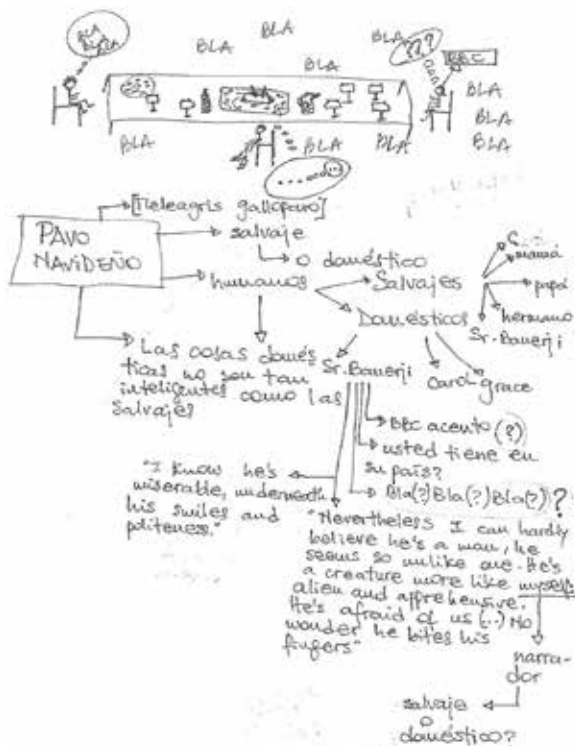 BLA
BLA BLA
BLA
BLA
BLA
BLA
???
BBC
BLA
BLA
BLA
BLA
BLA
BLA
BLA
[Meleagris gallopavo]
PAVO
NAVIDEÑO
salvaje
o doméstico
humanos
Salvajes
Domésticos
C...
mamá
papá
hermano
Sr. Banerji
Las cosas domés
ticas no son tan
inteligentes como las
salvajes
Sr. Banerji
Carol
grace
BBC acento (?)
usted tiene en
su país?
Bla(?) Bla(?) Bla(?)?
"I know he's
miserable, underneath
his smiles and
politeness."
"Nevertheless I can hardly
believe he's a man, he
seems so unlike one. He's
a creature more like myself:
alien and apprehensive.
He's afraid of us (...) No
wonder he bites his
fingers"
narra-
dor
salvaje
o
doméstico?